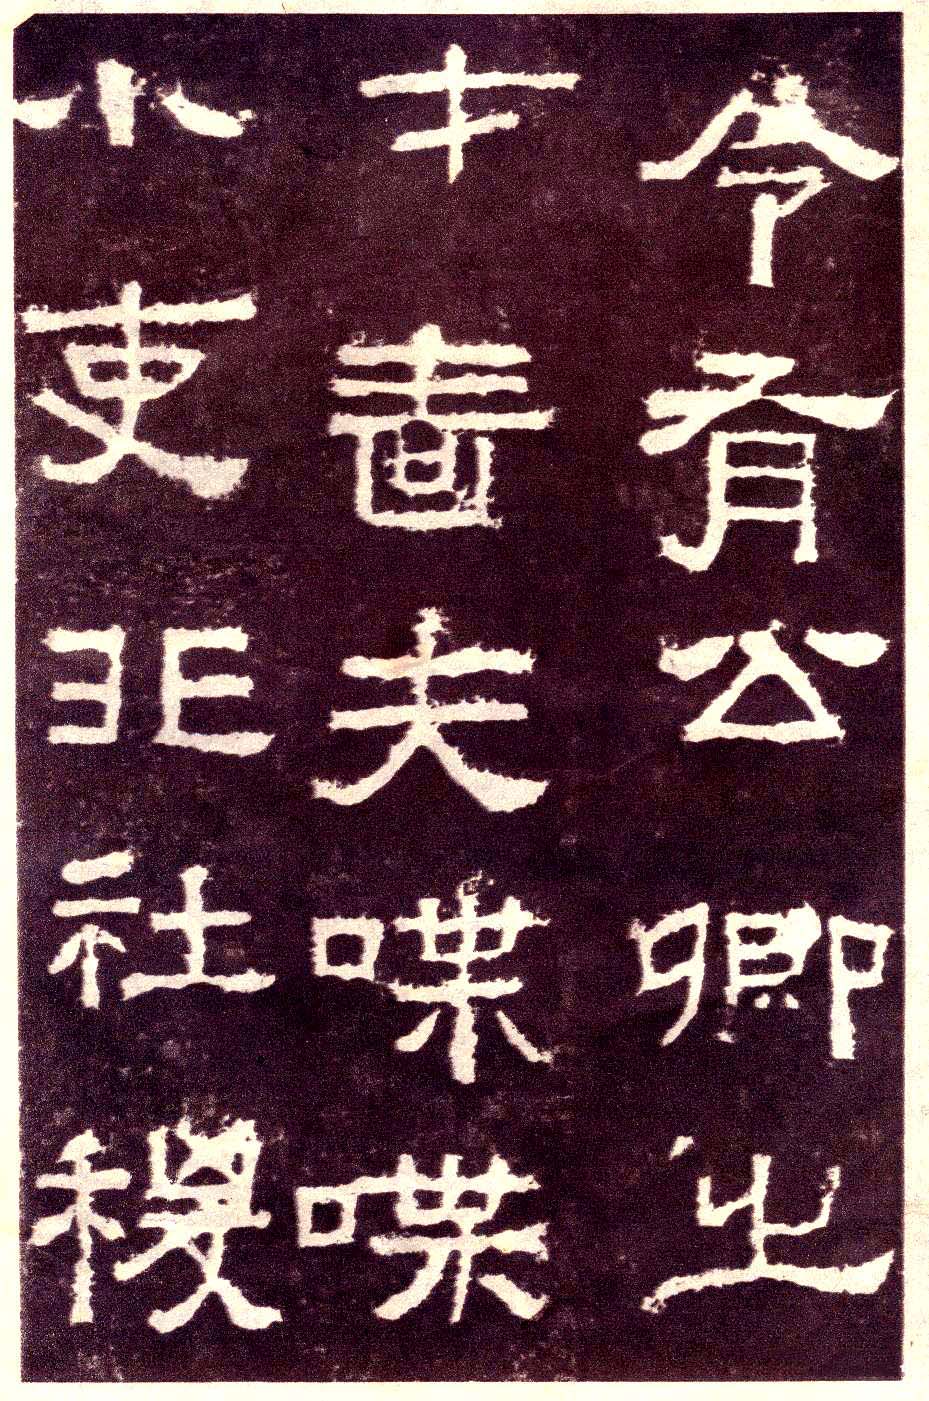 令有公卿之
才嗇夫喋喋
小吏非社稷